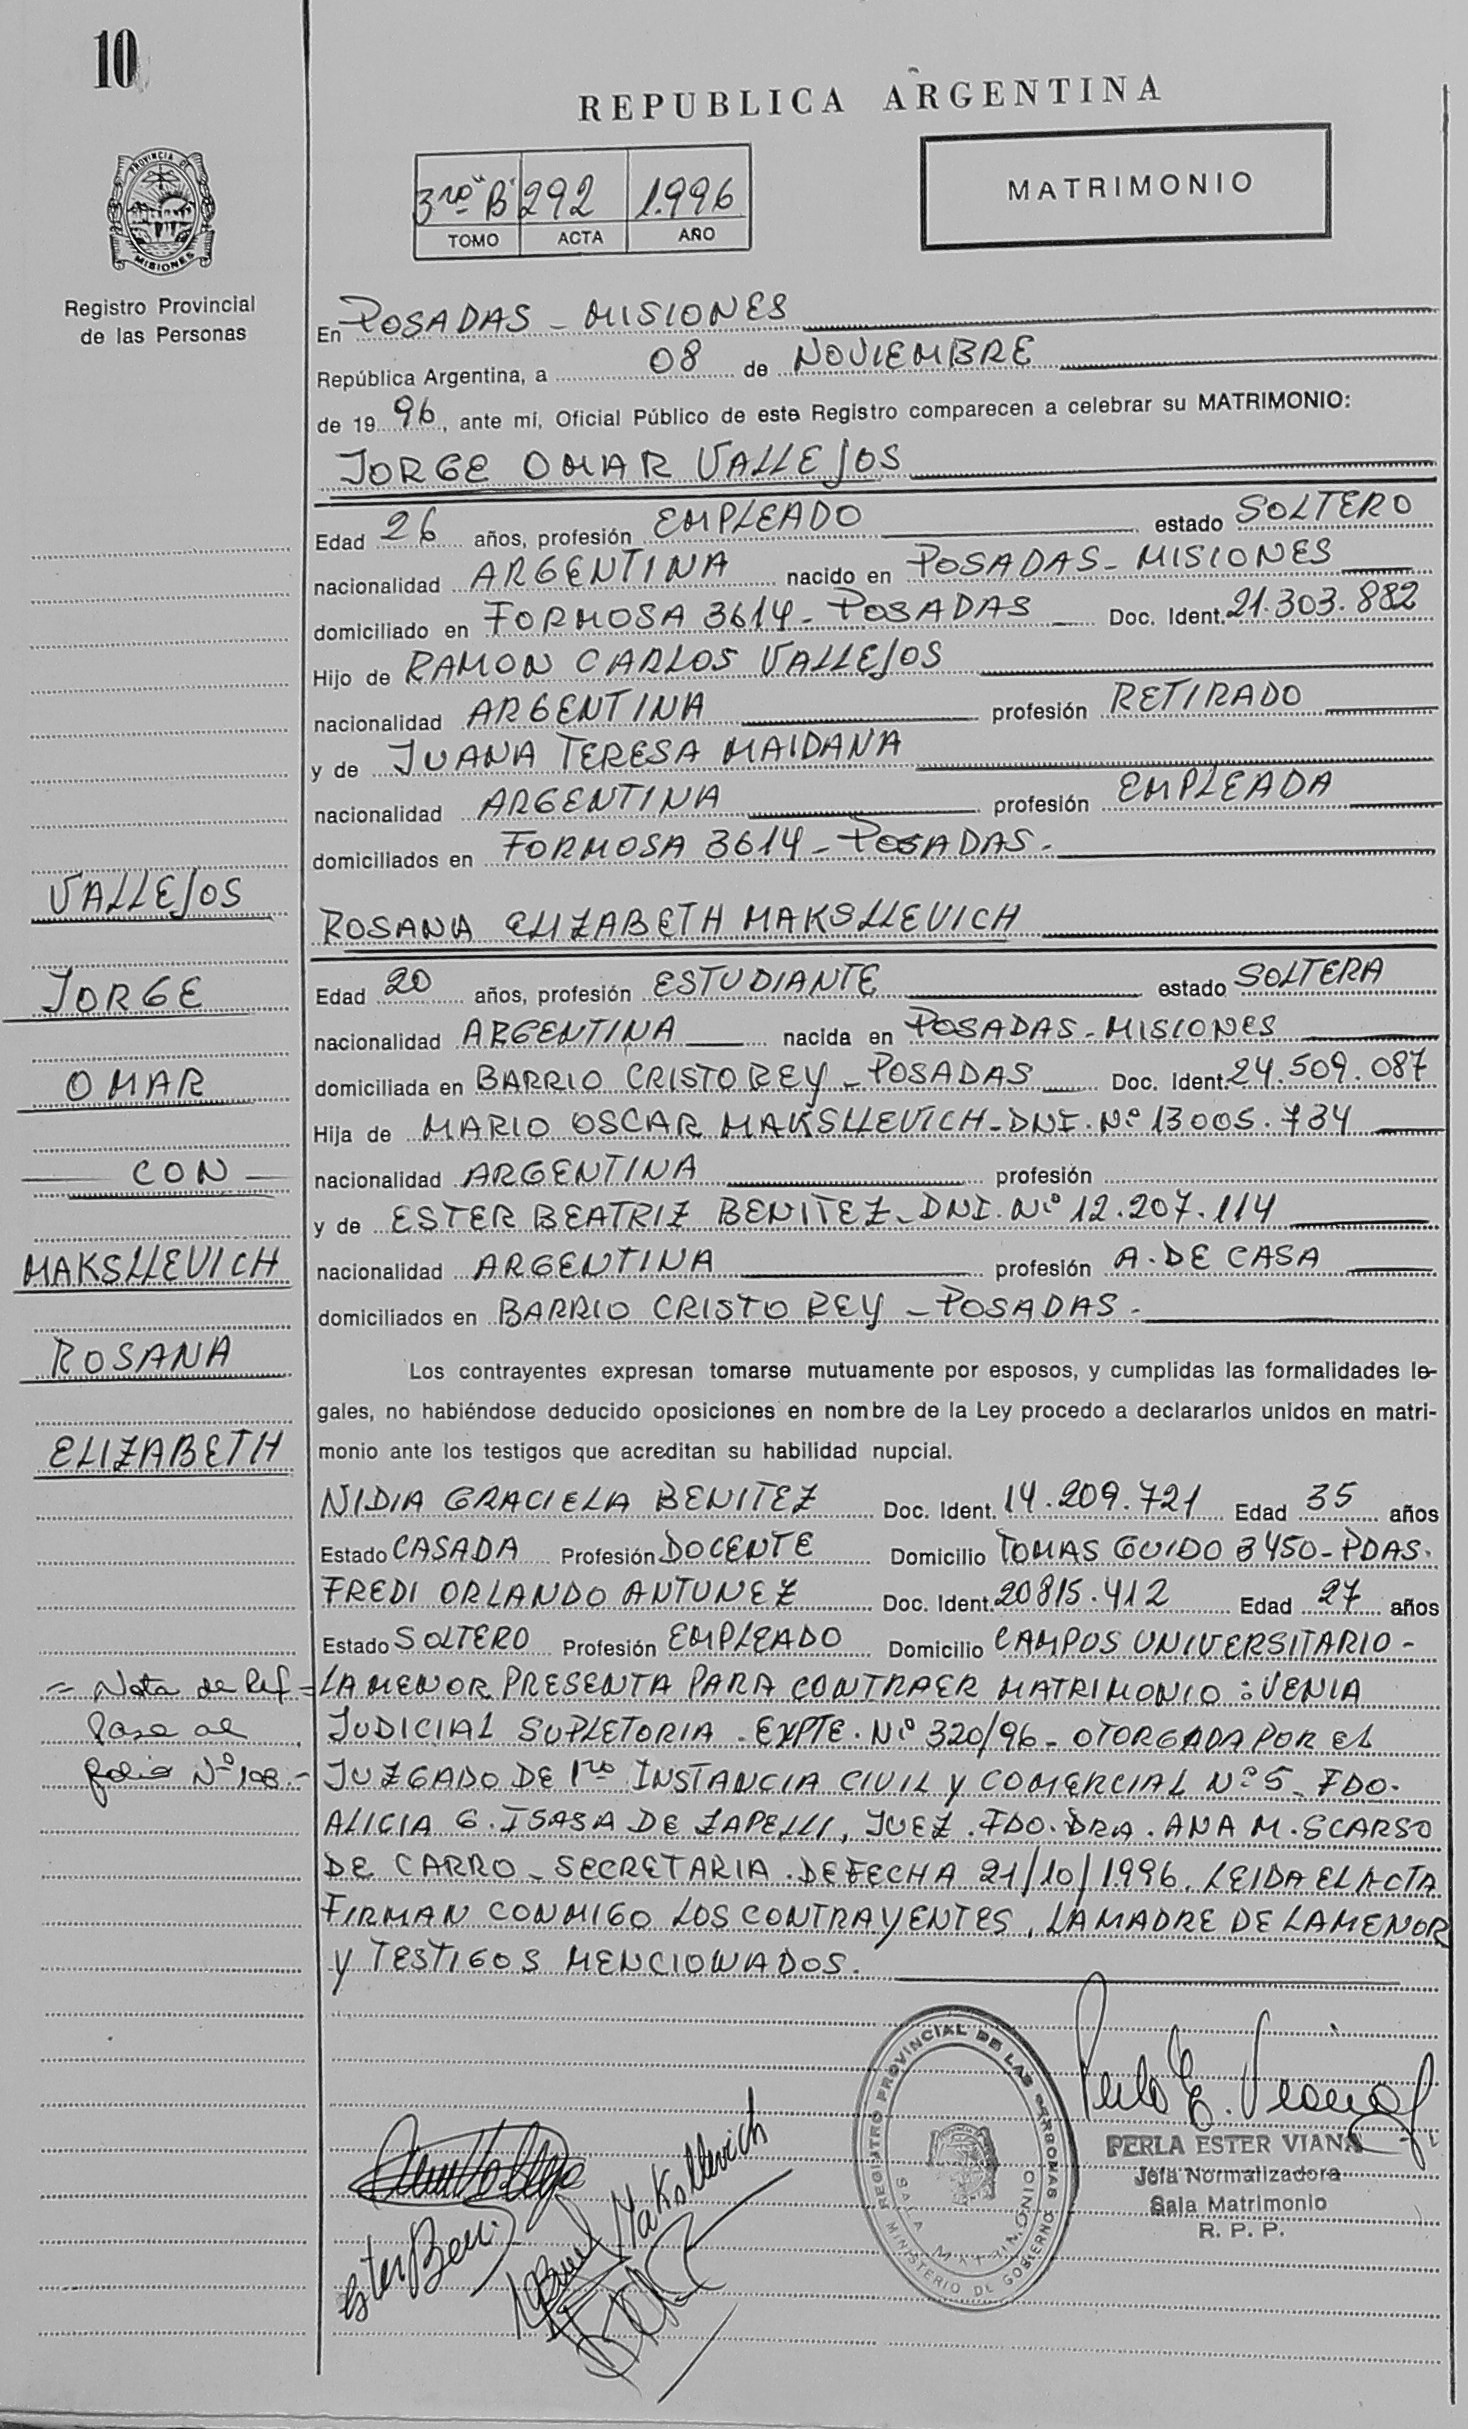 10
REPUBLICA ARGENTINA
PROVINCIA DE
MISIONES
Registro Provincial
de las Personas
3ra "B" 292 1.996
TOMO ACTA AÑO
MATRIMONIO
En POSADAS - MISIONES
República Argentina, a 08 de NOVIEMBRE
de 19 96, ante mí, Oficial Público de este Registro comparecen a celebrar su MATRIMONIO:
JORGE OMAR VALLEJOS
Edad 26 años, profesión EMPLEADO estado SOLTERO
nacionalidad ARGENTINA nacido en POSADAS - MISIONES
domiciliado en FORMOSA 3614 - POSADAS Doc. Ident. 21.303.882
Hijo de RAMON CARLOS VALLEJOS
nacionalidad ARGENTINA profesión RETIRADO
y de JUANA TERESA MAIDANA
nacionalidad ARGENTINA profesión EMPLEADA
domiciliados en FORMOSA 3614 - POSADAS -
VALLEJOS
JORGE
OMAR
— CON —
MAKSLLEVICH
ROSANA
ELIZABETH
ROSANA ELIZABETH MAKSLLEVICH
Edad 20 años, profesión ESTUDIANTE estado SOLTERA
nacionalidad ARGENTINA nacida en POSADAS - MISIONES
domiciliada en BARRIO CRISTO REY - POSADAS Doc. Ident. 24.509.087
Hija de MARIO OSCAR MAKSLLEVICH - DNI. Nº 13005.734
nacionalidad ARGENTINA profesión
y de ESTER BEATRIZ BENITEZ - DNI. Nº 12.207.114
nacionalidad ARGENTINA profesión A. DE CASA
domiciliados en BARRIO CRISTO REY - POSADAS -
Los contrayentes expresan tomarse mutuamente por esposos, y cumplidas las formalidades le-
gales, no habiéndose deducido oposiciones en nombre de la Ley procedo a declararlos unidos en matri-
monio ante los testigos que acreditan su habilidad nupcial.
NIDIA GRACIELA BENITEZ Doc. Ident. 14.209.721 Edad 35 años
Estado CASADA Profesión DOCENTE Domicilio TOMAS GUIDO 3450 - PDAS.
FREDI ORLANDO ANTUNEZ Doc. Ident. 20815.412 Edad 27 años
Estado SOLTERO Profesión EMPLEADO Domicilio CAMPOS UNIVERSITARIO -
= Nota de Ref =
Pasa al
folio Nº 108.-
LA MENOR PRESENTA PARA CONTRAER MATRIMONIO : VENIA
JUDICIAL SUPLETORIA - EXPTE. Nº 320/96 - OTORGADA POR EL
JUZGADO DE 1ra INSTANCIA CIVIL y COMERCIAL Nº 5 - FDO.
ALICIA G. ISASA DE ZAPELLI, JUEZ. FDO. DRA. ANA M. SCARSO
DE CARRO - SECRETARIA. DE FECHA 21/10/1996. LEIDA EL ACTA
FIRMAN CONMIGO LOS CONTRAYENTES, LA MADRE DE LA MENOR
y TESTIGOS MENCIONADOS.
REGISTRO PROVINCIAL DE LAS PERSONAS
SALA MATRIMONIO
MINISTERIO DE GOBIERNO
Perla E. Viana
PERLA ESTER VIANA
Jefa Normalizadora
Sala Matrimonio
R. P. P.
Maksllevich